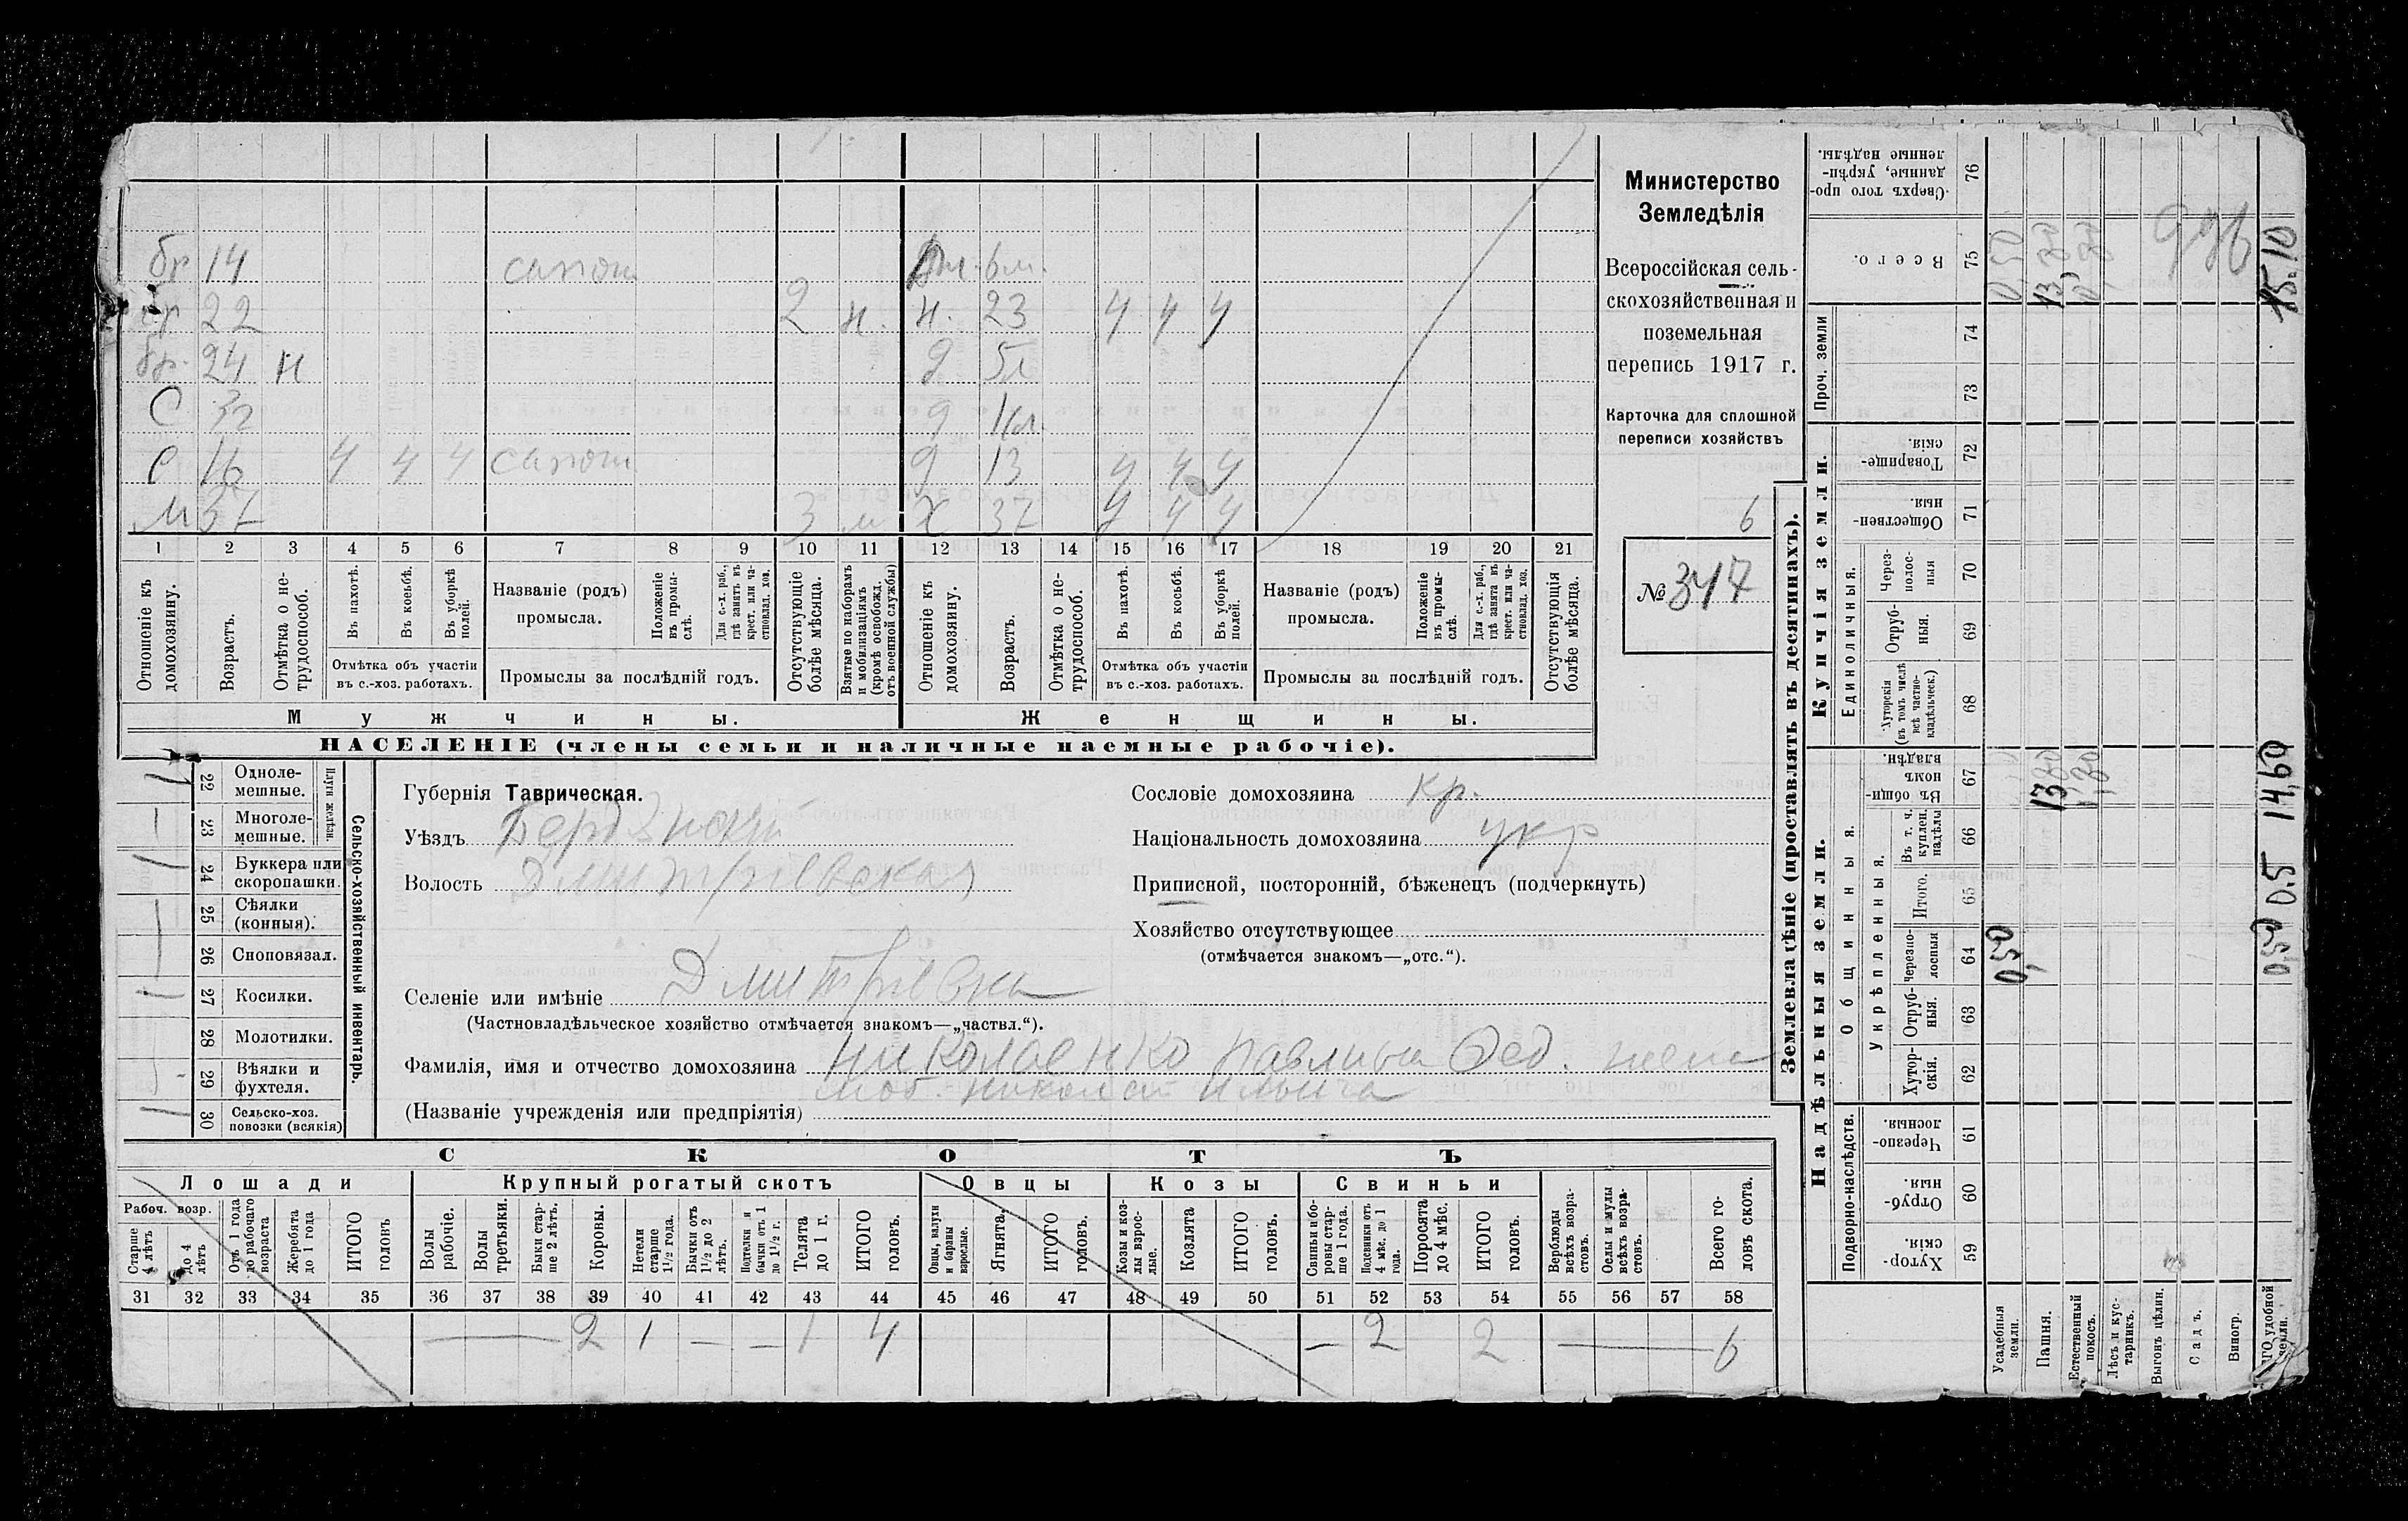 Министерство
Земледѣлія
Всероссійская сель-
скохозяйственная и
поземельная
перепись 1917 г.
Карточка для сплошной
переписи хозяйствъ
6
№ 347
бр 14 сапож
бр 22 2 н. н. 23 ч ч ч
бр. 24 н д 5л
С 3г д 11л.
С 16 ч ч ч сапож д 13 ч ч ч
М 37 3 м Х 37 ч ч ч
1 2 3 4 5 6 7 8 9 10 11 12 13 14 15 16 17 18 19 20 21
Отношеніе къ домохозяину.
Возрастъ.
Отмѣтка о не-трудоспособ.
Въ пахотѣ.
Въ косьбѣ.
Въ уборкѣ полей.
Отмѣтка объ участіи
въ с.-хоз. работахъ.
Названіе (родъ)
промысла.
Положеніе въ промы-слѣ.
Для с.-х. раб., гдѣ занятъ въ крест. или ча-стновлад. хоз.
Промыслы за послѣдній годъ.
Отсутствующіе болѣе мѣсяца.
Взятые по наборамъ и мобилизаціямъ (кромѣ освобожд. отъ военной службы)
Отношеніе къ домохозяину.
Возрастъ.
Отмѣтка о не-трудоспособ.
Въ пахотѣ.
Въ косьбѣ.
Въ уборкѣ полей.
Отмѣтка объ участіи
въ с.-хоз. работахъ.
Названіе (родъ)
промысла.
Положеніе въ промы-слѣ.
Для с.-х. раб., гдѣ занята въ крест. или ча-стновлад. хоз.
Промыслы за послѣдній годъ.
Отсутствующія болѣе мѣсяца.
Мужчины.
Женщины.
НАСЕЛЕНІЕ (члены семьи и наличные наемные рабочіе).
22 Одноле-мешные.
23 Многоле-мешные.
Плуги желѣзн.
24 Буккера или скоропашки.
25 Сѣялки (конныя).
26 Сноповязал.
27 Косилки.
28 Молотилки.
29 Вѣялки и фухтеля.
30 Сельско-хоз. повозки (всякія)
Сельско-хозяйственный инвентарь.
Губернія Таврическая.
Уѣздъ Бердянскій
Волость Дмитріевская
Селеніе или имѣніе Дмитріевка
(Частновладѣльческое хозяйство отмѣчается знакомъ—„частвл.“).
Фамилія, имя и отчество домохозяина Николаенко Павлина Фед. жена
моб. Николая Ильича
(Названіе учрежденія или предпріятія)
Сословіе домохозяина кр.
Національность домохозяина укр
Приписной, посторонній, бѣженецъ (подчеркнуть)
Хозяйство отсутствующее
(отмѣчается знакомъ—„отс.“).
СКОТЪ
Лошади
Рабоч. возр.
Старше 4 лѣтъ
до 4 лѣтъ
Отъ 1 года до рабочаго возраста
Жеребята до 1 года
ИТОГО головъ
Крупный рогатый скотъ
Волы рабочіе.
Волы третьяки.
Быки стар-ше 2 лѣтъ.
Коровы.
Нетели старше 1½ года.
Бычки отъ 1½ до 2 лѣтъ.
Подтелки и бычки отъ 1 до 1½ г.
Телята до 1 г.
ИТОГО головъ.
Овцы
Овцы, валухи и бараны взрослые.
Ягнята.
ИТОГО головъ.
Козы
Козы и коз-лы взрос-лые.
Козлята
ИТОГО головъ.
Свиньи
Свиньи и бо-ровы стар-ше 1 года.
Подсвинки отъ 4 мѣс. до 1 года.
Поросята до 4 мѣс.
ИТОГО головъ.
Верблюды всѣхъ возра-стовъ.
Ослы и мулы всѣхъ возра-стовъ.
Всего го-ловъ скота.
31 32 33 34 35 36 37 38 39 40 41 42 43 44 45 46 47 48 49 50 51 52 53 54 55 56 57 58
— 2 1 — — 1 4 — 2 2 — 6
Землевладѣніе (проставлять въ десятинахъ).
Надѣльныя земли.
Подворно-наслѣдств.
Хутор-скія. 59
Отруб-ныя. 60
Черезпо-лосныя. 61
Общинныя.
Укрѣпленныя.
Хутор-скія. 62
Отруб-ныя. 63
Черезпо-лосныя 64
Итого. 65
Въ т. ч. куплен. надѣлы 66
Въ общин-номъ владѣн. 67
Купчія земли.
Единоличныя.
Хуторскія (въ томъ числѣ всѣ частно-владѣльческ.) 68
Отруб-ныя. 69
Через-полос-ныя 70
Обществен-ныя. 71
Товарище-скія. 72
Проч. земли
73
74
Всего. 75
Сверхъ того про-данные, укрѣп-ленные надѣлы. 76
Усадебныя земли. 0,50 0,50
Пашня.
Естественный покосъ.
Лѣсъ и кус-тарникъ.
Выгонъ цѣлин.
Садъ.
Виногр.
0,50 0.5 14,60 15.10